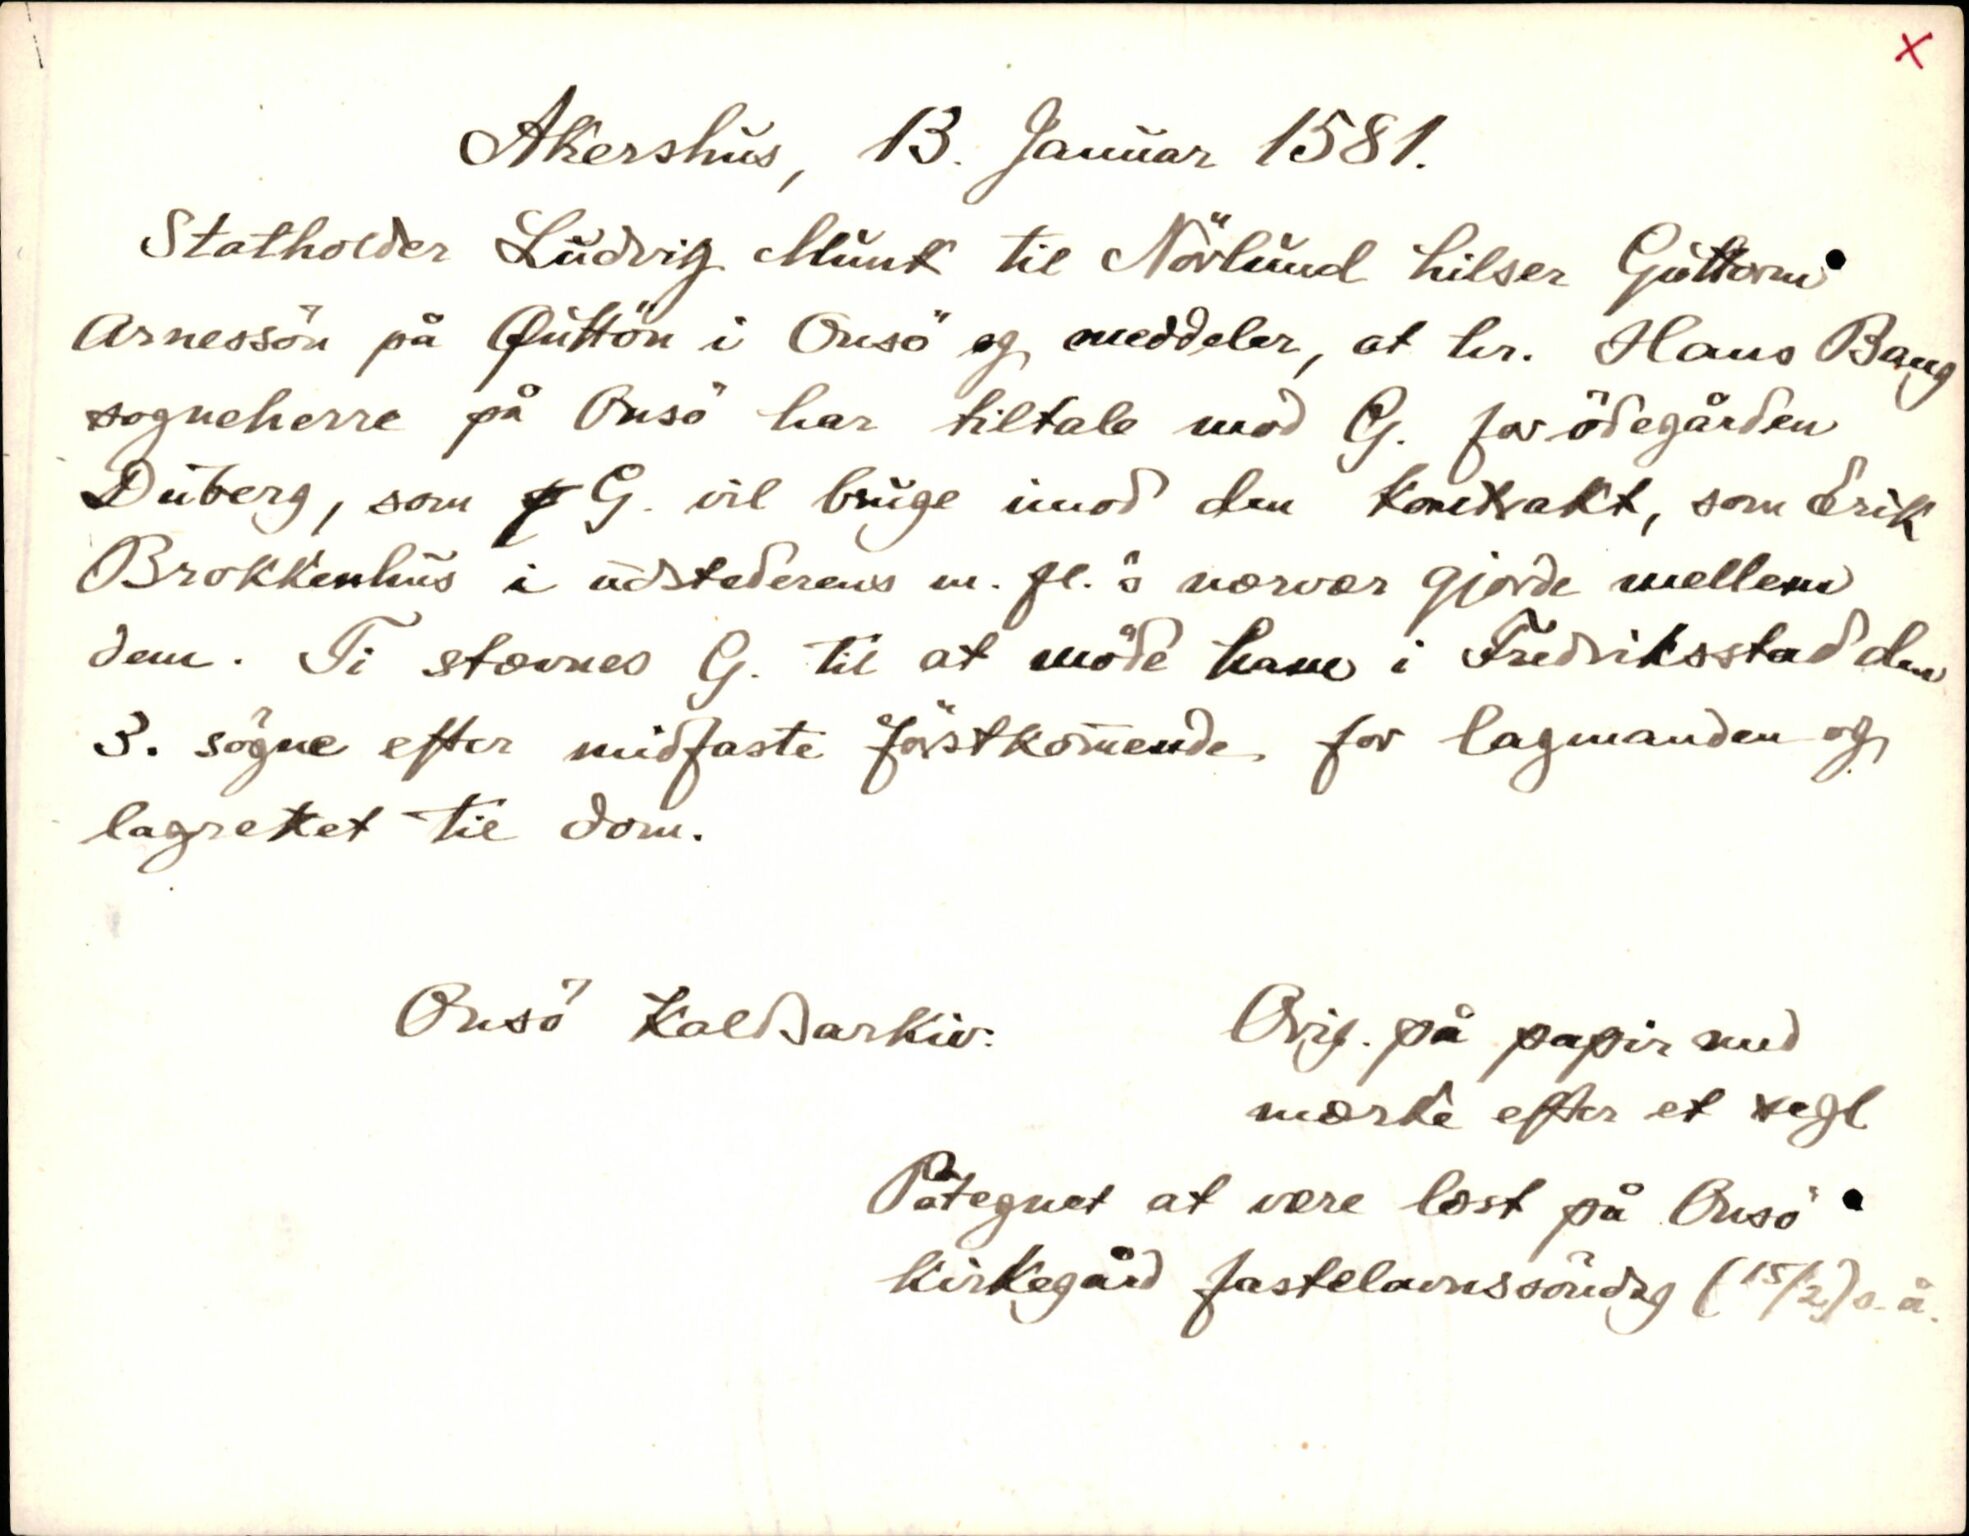 x
Akershus, 13. Januar 1581.
Statholder Ludvig Munk til Nörlund hilser Guttorm
Arnessön på Quttön i Onsö og meddeler, at hr. Hans Bang
sogneherre på Onsö har tiltale mod G. for ödegården
Duberg, som G. vil bruge imod den kontrakt, som Erik
Brokkenhus i udstederens m. fl.'s nærvær gjorde mellem
dem. Ti stævnes G. til at möde ham i Fredriksstad den
3. sögne efter midfaste förstkom̄ende for lagmanden og
lagrettet til dom.
Onsö Kaldsarkiv.
Orig. på papir med
mærke efter et segl
Påtegnet at være læst på Onsö
kirkegård fastelavnssöndag (15/2) s. å.